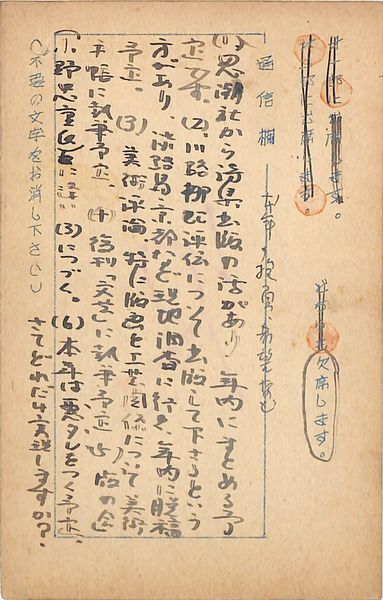 出席します。
出席します。
欠席します。
通信欄 本年の抱負、希望など
(1) 思潮社から詩集出版の話があり 年内にまとめる予
定です。(2) 川路柳虹評伝について出版して下さるという
方があり、淡路島、京都など現地調査に行き、年内に脱稿
予定。 (3) 美術評論、特に版画と工芸関係について美術
手帖に執筆予定 (4) 復刊「文芸」に執筆予定 (5) 版の企
小野忠重氏 (3)につづく。(6) 本年は悪タレをつく予定。
さてどれだけ実現しますか?
(不要の文字をお消し下さい)